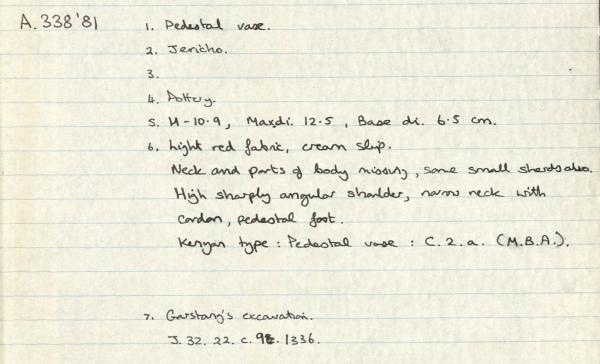 A.338'81
1. Pedestal vase.
2. Jericho.
3.
4. Pottery.
5. H-10.9, Maxdi. 12.5, Base di. 6.5 cm.
6. Light red fabric, cream slip.
Neck and parts of body missing, some small sherds also.
High sharply angular shoulder, narrow neck with
cordon, pedestal foot.
Kenyan type: Pedestal vase: C.2.a. (M.B.A.).
7. Garstang's excavation.
J. 32. 22. c. 1336.